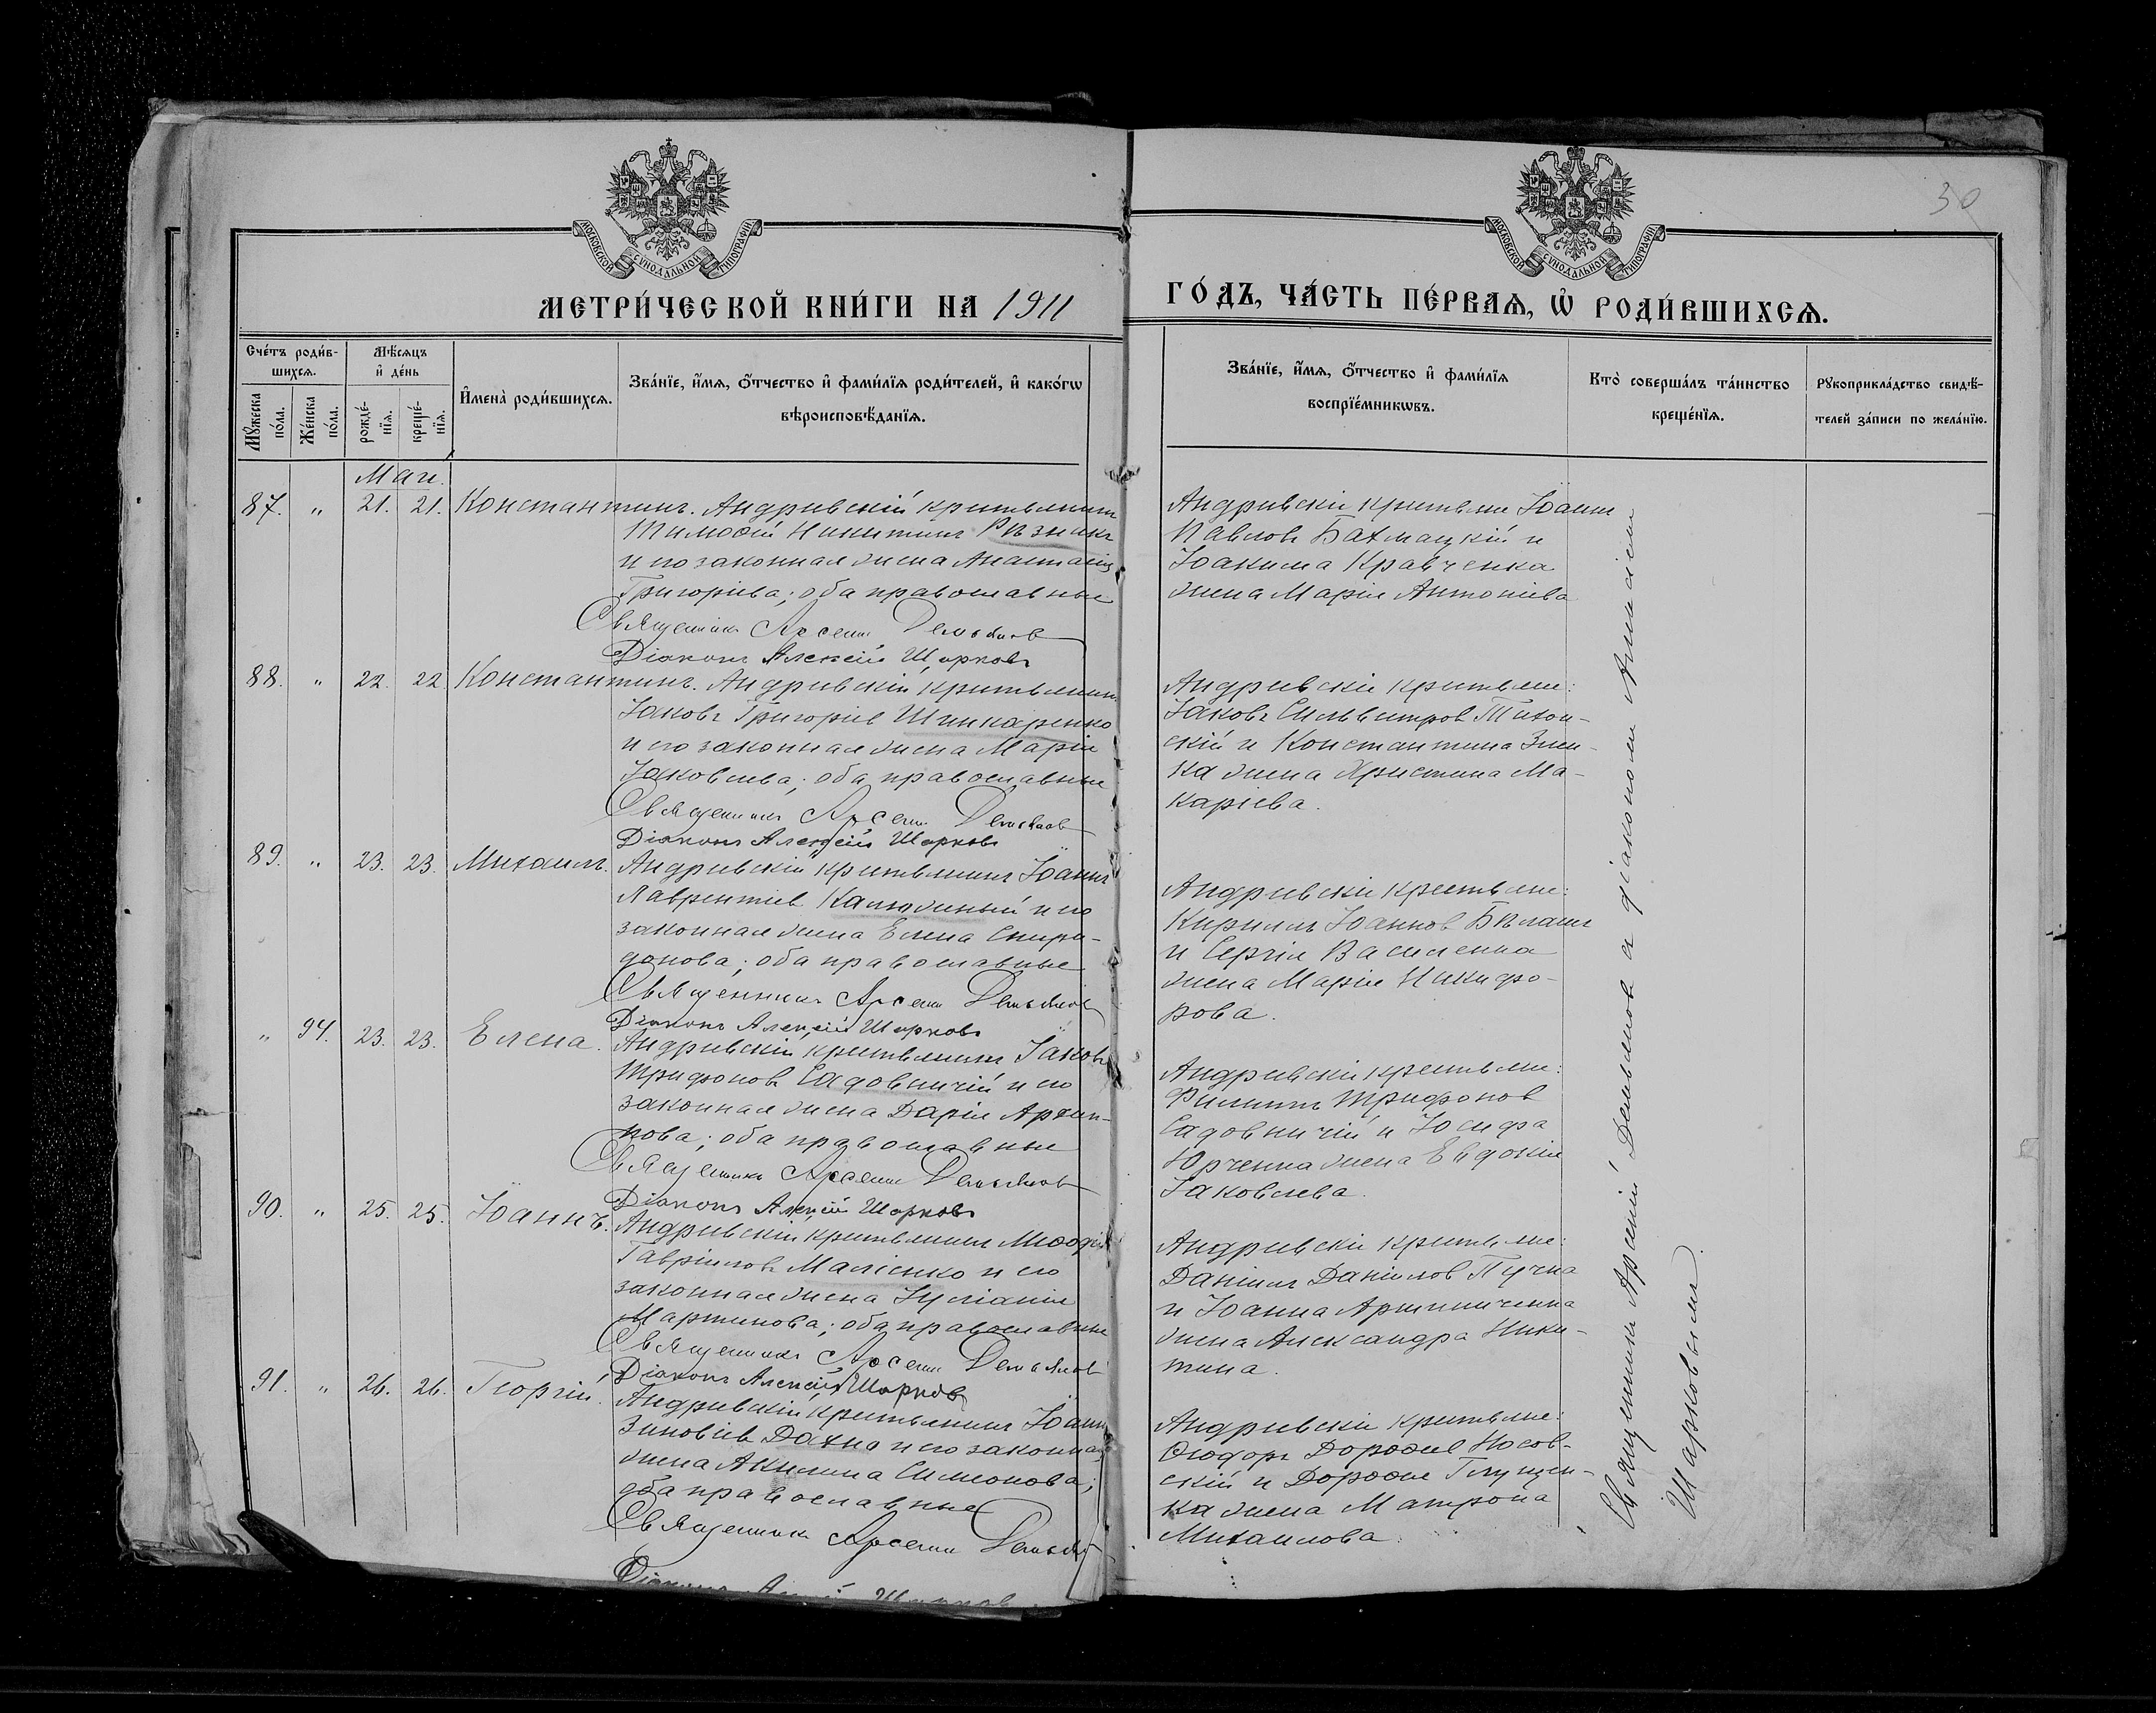 30
МОСКОВСКОЙ СѴНОДАЛЬНОЙ ТИПОГРАФІИ
МОСКОВСКОЙ СѴНОДАЛЬНОЙ ТИПОГРАФІИ
МЕТРИ́ЧЕСКОЙ КНИ́ГИ НА 1911
ГО́ДЪ, ЧА́СТЬ ПЕ́РВАѦ, Ѡ҆ РОДИ́ВШИХСѦ.
Сче́тъ роди́в-
шихсѧ.
Мꙋ́жеска по́ла.
Же́нска по́ла.
Мѣ́сѧцъ
и҆ де́нь
рожде́-
нїѧ.
креще́-
нїѧ.
И҆мена̀ роди́вшихсѧ.
Зва́нїе, и҆́мѧ, ѻ҆́тчество и҆ фами́лїѧ роди́телей, и҆ како́гѡ
вѣроисповѣ́данїѧ.
Зва́нїе, и҆́мѧ, ѻ҆́тчество и҆ фами́лїѧ
воспрїе́мникѡвъ.
Кто̀ соверша́лъ та́инство
креще́нїѧ.
Рꙋкоприкла́дство свидѣ́-
телей за́писи по жела́нїю.
Маи.
87. „ 21. 21. Константинъ. Андреевскій крестьянинъ
Тимоѳей Никитинъ Рѣзникъ
и его законная жена Анастасія
Григоріева; оба православные
Священникъ Арсеній Демьянов
Діаконъ Алексей Шарковъ
Андреевскіе крестьяне Іоаннъ
Павловъ Бахмацкій и
Іоакима Кравченка
жена Марія Антоніева
88. „ 22. 22. Константинъ. Андреевскій крестьянинъ
Іаковъ Григоріев Шинкаренко
и его законная жена Марія
Іаковлева; оба православные
Священникъ Арсеній Демьянов
Діаконъ Алексей Шарковъ
Андреевскіе крестьяне:
Іаковъ Сильвестров Тихон-
скій и Константина Зин-
ка жена Христина Ма-
каріева.
89. „ 23. 23. Михаилъ. Андреевскій крестьянинъ Іоаннъ
Лаврентіев Калюжный и его
законная жена Елена Спири-
донова; оба православные
Священникъ Арсеній Демьянов
Діаконъ Алексей Шарковъ
Андреевскіе крестьяне:
Кириллъ Іоаннов Бѣлашъ
и Сергія Василенка
жена Марія Никифо-
рова.
„ 94. 23. 23. Елена. Андреевскій крестьянинъ Іаковъ
Трифонов Садовничій и его
законная жена Дарія Архип-
пова; оба православные
Священникъ Арсеній Демьянов
Діаконъ Алексей Шарковъ
Андреевскіе крестьяне:
Филиппъ Трифонов
Садовничій и Іосифа
Юрченка жена Евдокія
Іаковлева.
90. „ 25. 25. Іоаннъ. Андреевскій крестьянинъ Меѳодій
Гавріиловъ Маліенко и его
законная жена Іуліанія
Мартинова; оба православные
Священникъ Арсеній Демьянов
Діаконъ Алексей Шарковъ
Андреевскіе крестьяне:
Даніилъ Даніилов Пучка
и Іоанна
жена Александра Ники-
тина.
91. „ 26. 26. Георгій. Андреевскій крестьянинъ Іоаннъ
Зиновіев Дахно и его законная
жена Акилина Симеонова;
оба православные
Священникъ Арсеній Демьянов
Діаконъ Алексей Шарковъ
Андреевскіе крестьяне:
Ѳеодоръ Дороѳіев Носов-
скій и Дороѳія Глущен-
ка жена Матрона
Михаилова.
Священникъ Арсеній Демьянов съ діакономъ Алексіемъ
Шарковымъ.